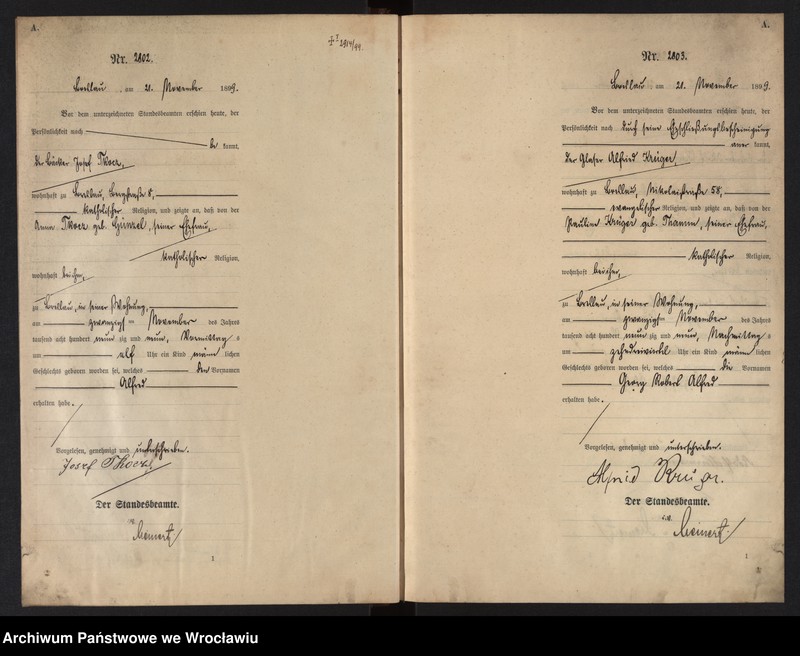 A.
Nr. 2802.
Breslau, am 21. November 1899.
Vor dem unterzeichneten Standesbeamten erschien heute, der
Persönlichkeit nach
be kannt,
der Bäcker Josef Tkocz,
wohnhaft zu Breslau, 8,
katholischer Religion, und zeigte an, daß von der
Anna Tkocz geb. Günzel, seiner Ehefrau,
katholischer Religion,
wohnhaft bei ihm,
zu Breslau, in seiner Wohnung,
am zwanzigsten November des Jahres
tausend acht hundert neun zig und neun, Vormittag s
um elf Uhr ein Kind männ lichen
Geschlechts geboren worden sei, welches den Vornamen
Alfred
erhalten habe.
Vorgelesen, genehmigt und unterschrieben.
Josef Tkocz
Der Standesbeamte.
Meinert
1
A.
Nr. 2803.
Breslau, am 21. November 1899.
Vor dem unterzeichneten Standesbeamten erschien heute, der
Persönlichkeit nach durch seine Eheschließungsbescheinigung
aner kannt,
der Glaser Alfried Krüger,
wohnhaft zu Breslau, Nikolaistraße 58,
evangelischer Religion, und zeigte an, daß von der
Krüger geb. Thamm, seiner Ehefrau,
katholischer Religion,
wohnhaft bei ihm,
zu Breslau, in seiner Wohnung,
am zwanzigsten November des Jahres
tausend acht hundert neun zig und neun, Nachmittag s
um Uhr ein Kind männ lichen
Geschlechts geboren worden sei, welches die Vornamen
Georg Robert Alfred
erhalten habe.
Vorgelesen, genehmigt und unterschrieben.
Alfried Krüger.
Der Standesbeamte.
i.V.
Meinert
1
Archiwum Państwowe we Wrocławiu